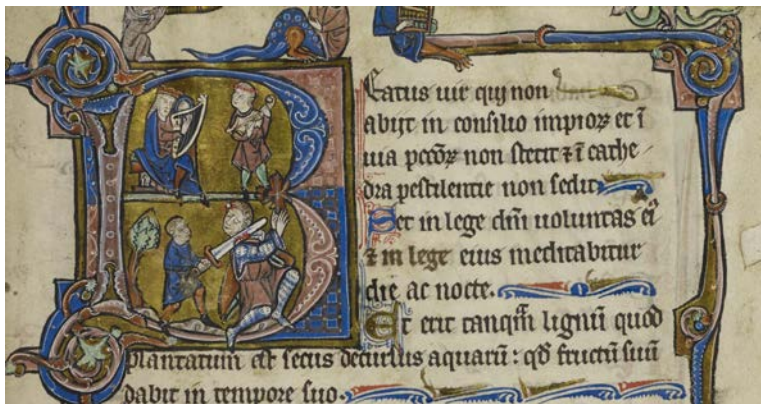 BEatus uir qui non
abijt in consilio impioꝝ et ĩ
uia pccõꝝ non stetit ⁊ ĩ cathe-
dra pestilentie non sedit
Set in lege dñi uoluntas eiꝰ
⁊ in lege eius meditabitur
die ac nocte.
Et erit tanqm̃ lignũ quod
plantatum est secus decursus aquarũ : qd̃ fructũ suũ
dabit in tempore suo.